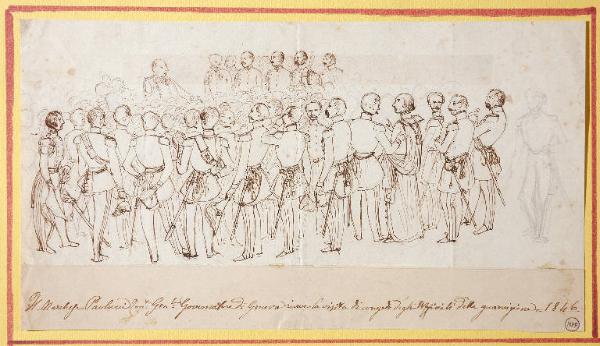 Il March.e Paolucci Gov.re Gen.le Governatore di Genova riceve la visita di congedo degli Uffiziali della guarnigione. 1846